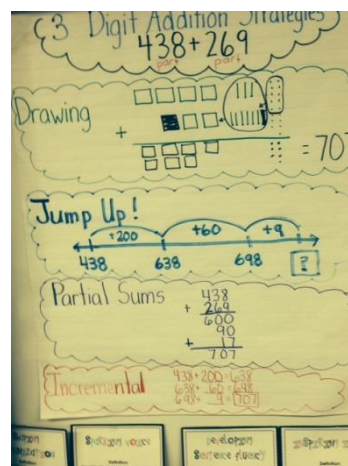 3 Digit Addition Strategies
438+269
part part
Drawing
+
=707
Jump Up!
+200 +60 +9
438 638 698 ?
Partial Sums
438
+ 269
600
90
+ 17
707
Incremental
438+200=638
638+ 60=698
698+ 9=707
Sentence fluency